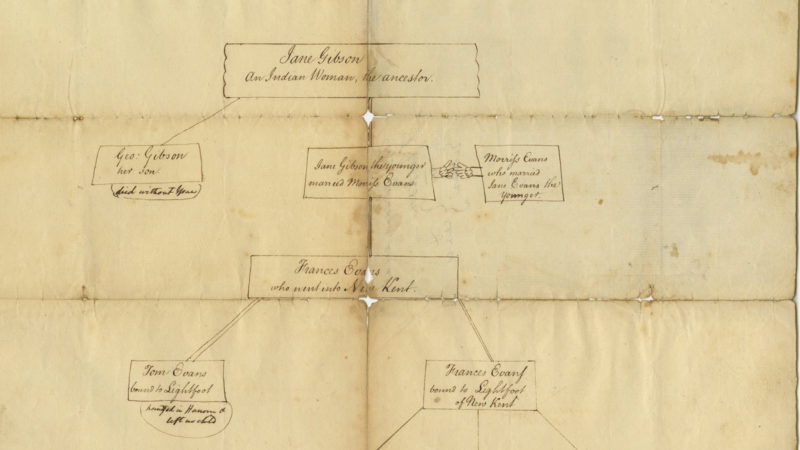 Jane Gibson
An Indian Woman, the ancestor.
Geo: Gibson
her son
died without Issue
Jane Gibson the younger
married Morriss Evans
Morriss Evans
who married
Jane Evans the
Younger.
Frances Evans
who went into New Kent.
Tom Evans
bound to Lightfoot
in Hanover &
left no child
Frances Evans
bound to Lightfoot
of New Kent